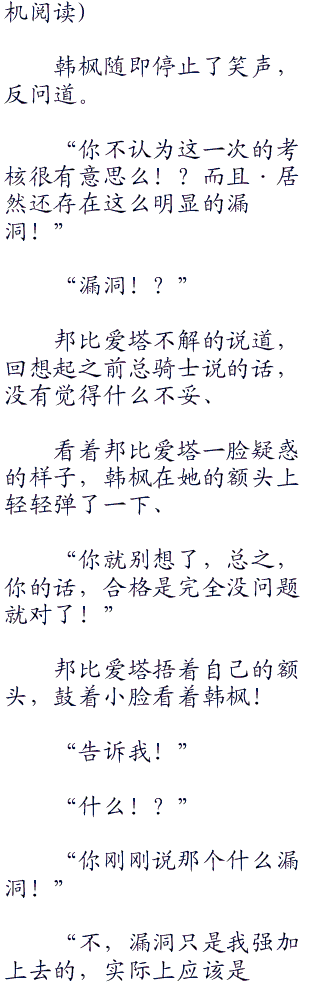 机阅读)
韩枫随即停止了笑声，
反问道。
“你不认为这一次的考
核很有意思么！？而且·居
然还存在这么明显的漏
洞！”
“漏洞！？”
邦比爱塔不解的说道，
回想起之前总骑士说的话，
没有觉得什么不妥、
看着邦比爱塔一脸疑惑
的样子，韩枫在她的额头上
轻轻弹了一下、
“你就别想了，总之，
你的话，合格是完全没问题
就对了！”
邦比爱塔捂着自己的额
头，鼓着小脸看着韩枫！
“告诉我！”
“什么！？”
“你刚刚说那个什么漏
洞！”
“不，漏洞只是我强加
上去的，实际上应该是